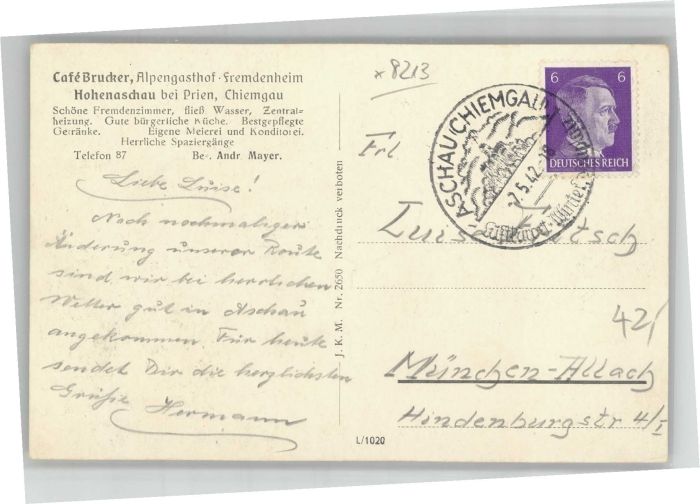 Café Brucker, Alpengasthof · Fremdenheim
Hohenaschau bei Prien, Chiemgau
Schöne Fremdenzimmer, fließ. Wasser, Zentral-
heizung. Gute bürgerliche Küche. Bestgepflegte
Getränke. Eigene Meierei und Konditorei.
Herrliche Spaziergänge
Telefon 87 Bes. Andr Mayer.
Liebe Luise!
Nach nochmaliger
Änderung unserer Route
sind wir bei herrlichem
Wetter gut in Aschau
angekommen. Für heute
sendet Dir die herzlichsten
Grüße Hermann
J. K. M. Nr. 2650 Nachdruck verboten
L/1020
x 8213
6 6
DEUTSCHES REICH
ASCHAU (CHIEMGAU)
-7.5.42-18
Luftkurort
Frl
Luise
42/
München-Allach
Hindenburgstr 4/I